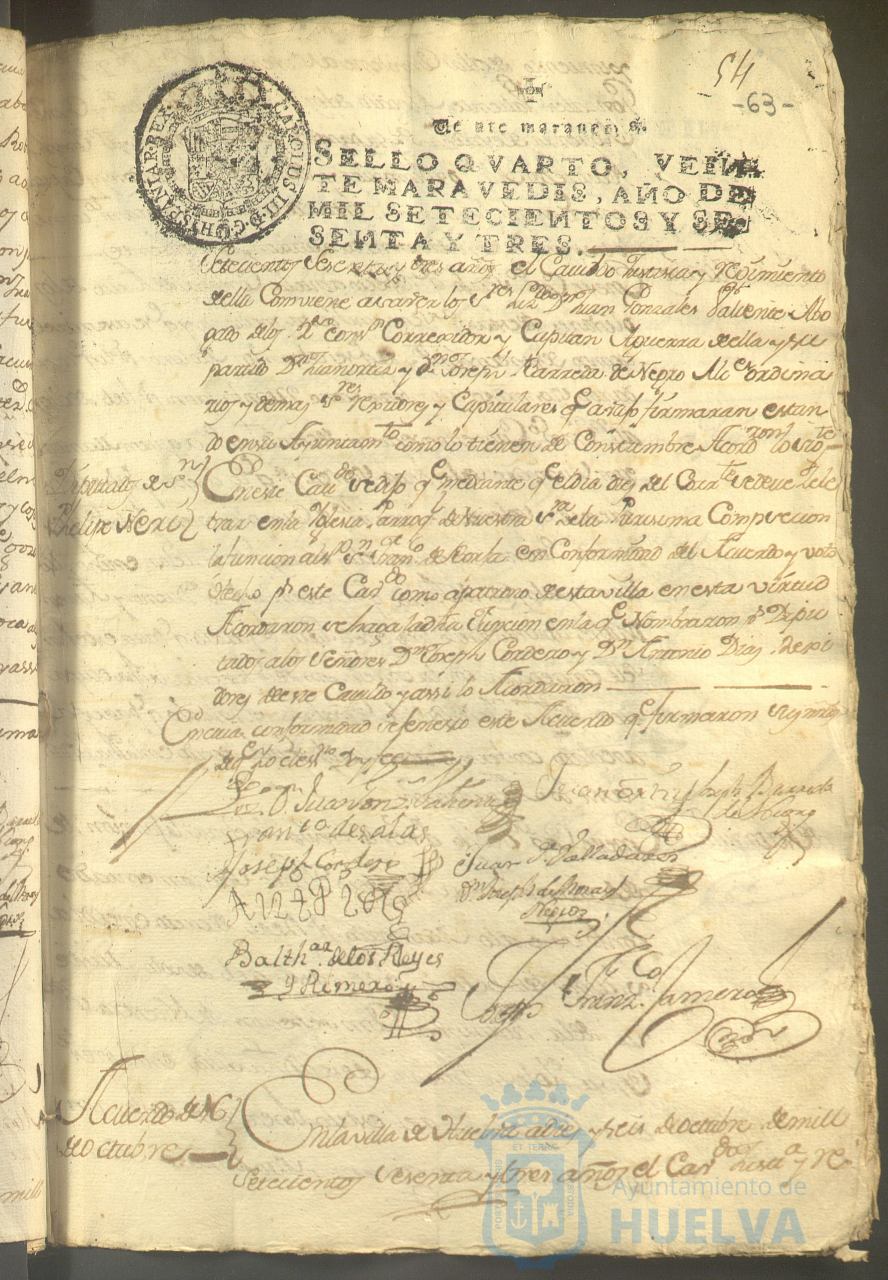 54
-63-
CAROLUS III D.G. HISPANIAR. REX
SELLO QVARTO, VEIN
TE MARAVEDIS, AÑO DE
MIL SETECIENTOS Y SE
SENTA Y TRES.
Setecientos Sesenta y tres años el Cauildo Justicia y reximiento
della Combiene a sauer los Sres Lizdo Dn Juan Gonzales Valiente Abo
gado de los Rs consos Correxidor y Capitan Aguerra della y su
partido Dn Juan ortiz y Dn Joseph Barreda de Negro Alces ordina
rios y demas Sres rexidores y Capitulares qe aqui firmaran estan
do en su Ayuntamto como lo tienen de Constumbre Acordaron lo sigte
Diputados de Sn
Phelipe Neri
En este Caudo se dijo qe mediante qe el dia dies del Corrte se deve Sele
trar en la Yglesia Parroql de Nuestra Sra de la Purisima Compsecion
la funcion al Sr Sn Franco de Borja en Conformidad del Acuerdo y voto
fecho pr este Caudo como a patrono desta villa en esta virtud
Acordaron se haga la dha funcion en la qe Nombraron ps Dipu
tados a los Señores Dn Joseph Cordero y Dn Antonio Dias rexi
dores deste Cauildo y assi lo Acordaron
En cuia conformidad se fenesio este Acuerdo qe firmaron Sus mrds
de qe yo el essno doy fee
Lizdo Dn Juan Gonz Valiente
Juan Ortiz
Joseph Barreda
de Negro
Franto de salas
Joseph Cordero
Juan de Valladares
Dn Joseph de Moras
Negro
Balthar de los Reyes
y Romero
Franz Romero
Acuerdo de 16
de octubre
En la villa de Huelva a dies y seis de octubre de mill
Setecientos Sesenta y tres años el Caudo Justa y re
Ayuntamiento de
HUELVA